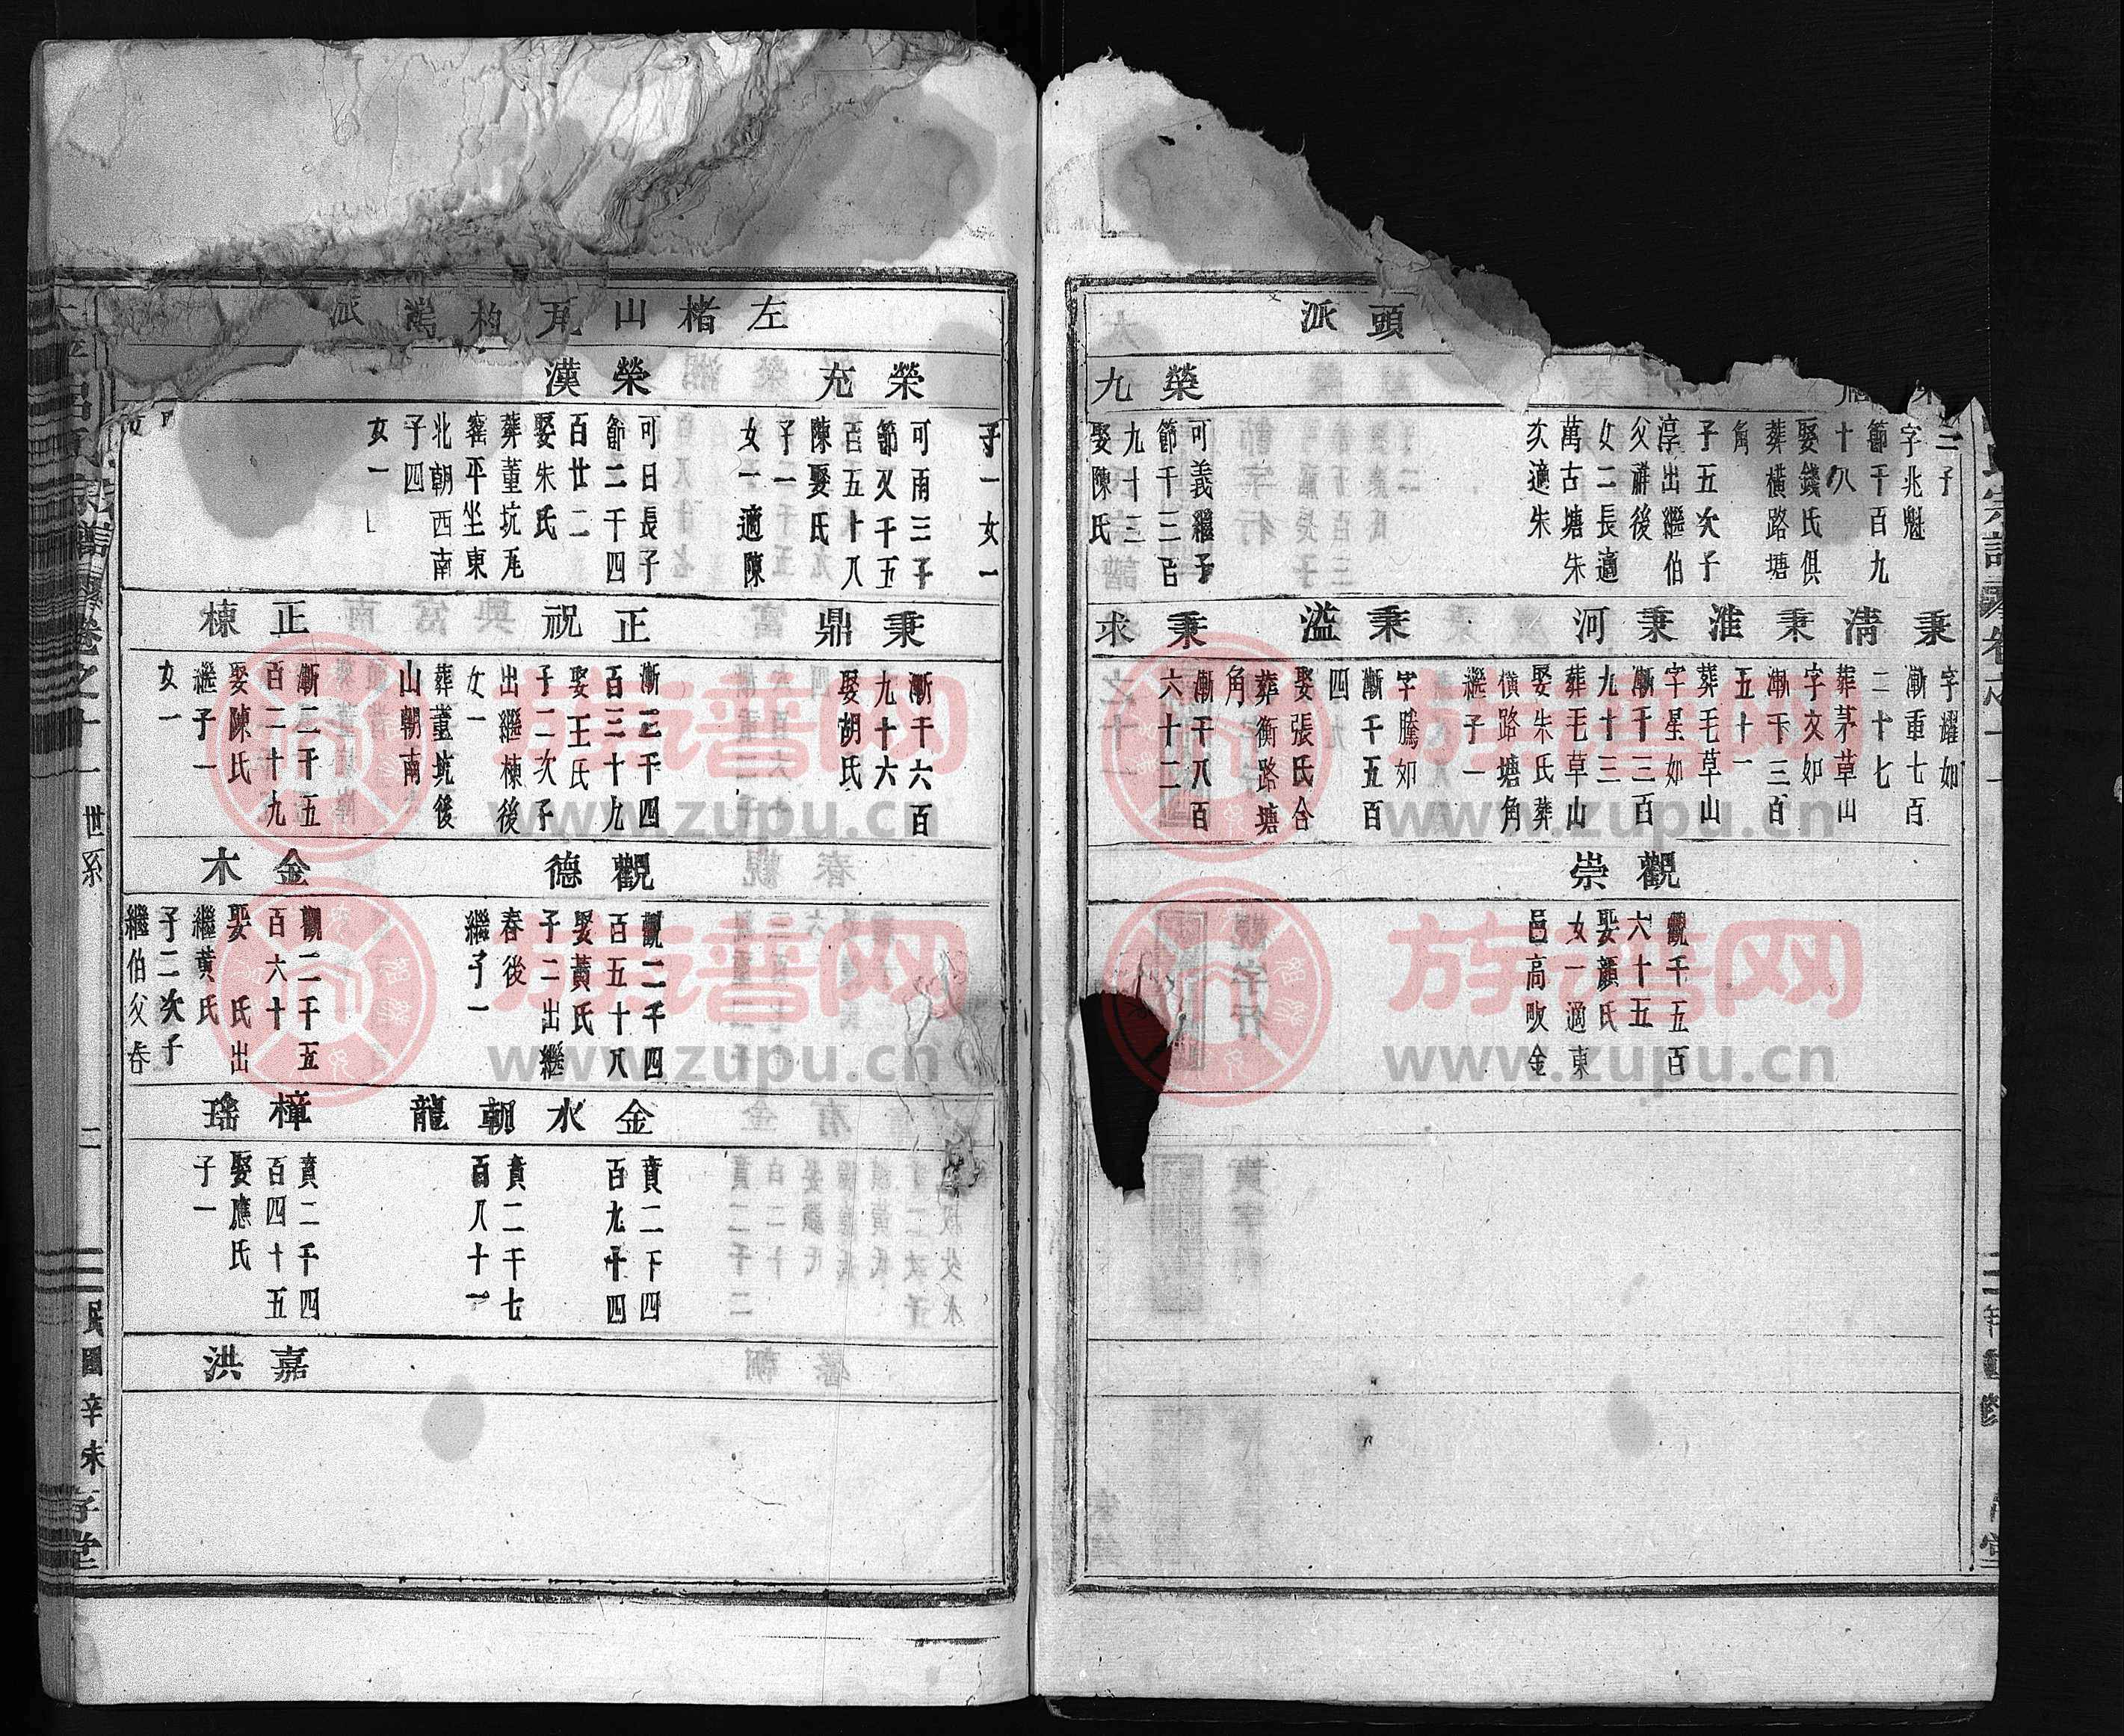 頭派
榮九
二子
字兆魁
節千百九
十八
娶錢氏俱
葬橫路塘
角
子五次子
淳出繼伯
父蔣後
女二長適
萬古塘朱
次適朱
可義繼子
節千三百
九十三
娶陳氏
秉清
秉淮
秉河
秉溢
秉求
字耀如
漸重七百
二十七
葬茅草山
字文如
漸千三百
五十一
葬毛草山
字星如
漸千三百
九十三
葬毛草山
娶朱氏葬
橫路塘角
繼子一
字騰如
漸千五百
四
娶張氏合
葬衡路塘
角
漸千八百
六十二
觀崇
觀千五百
六十五
娶顏氏
女一適東
邑高畈金
左楮山
派
榮充
榮漢
子一女一
可雨三子
節乂千五
百五十八
陳娶氏
子一
女一適陳
可日長子
節二千四
百廿二
娶朱氏
葬董坑尾
窰平坐東
北朝西南
子四
女一
秉鼎
正祝
正棟
漸千六百
九十六
娶胡氏
漸二千四
百三十九
娶王氏
子二次子
出繼棟後
女一
葬董坑後
山朝南
漸二千五
百二十九
娶陳氏
繼子一
女一
觀德
金木
觀二千四
百五十八
娶黃氏
子二出繼
春後
繼子一
觀二千五
百六十
娶 氏出
繼黃氏
子二次子
繼伯父春
金水
朝龍
樟瑤
賁二千四
百九十四
賁二千七
百八十一
賁二千四
百四十五
娶應氏
子一
嘉洪
卷之十一 世系 二 民國辛未
www.zupu.cn
族谱网
www.zupu.cn
族谱网
www.zupu.cn
族谱网
www.zupu.cn
族谱网